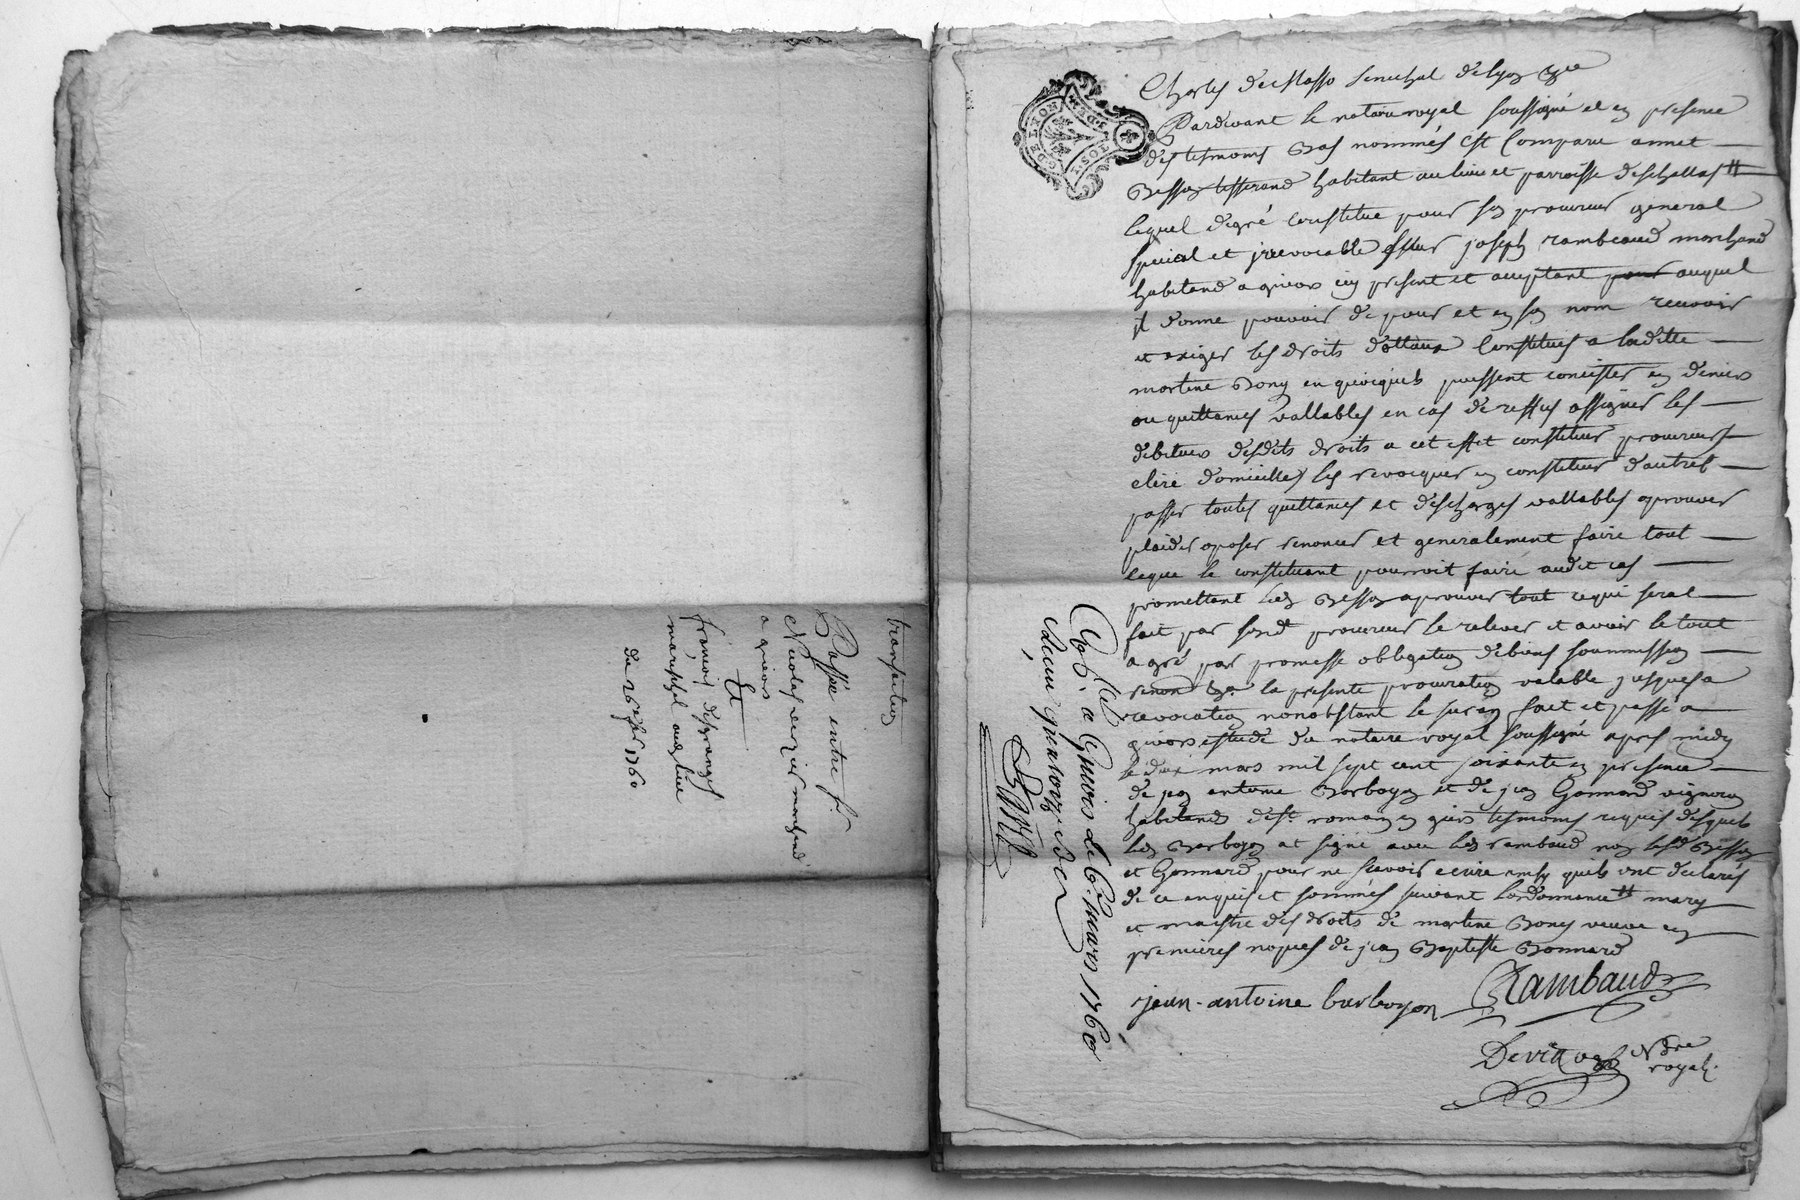 transaction
Passée entre sr
Nicolas verzier marchand
a givors
Et
françois desgranges
mareschal audit lieu
du 26e fer 1760
G. DE LYON
2 S. DEN
TOSI
Charles de Masso senechal de lyon &ca
Pardevant le notaire royal soussigné et en presence
des tesmoins Bas nommés Est Comparu annet
Besson tisserand habitant au lieu et parroisse deschallas #
lequel de gré constitue pour son procureur general
special et jrrevocable sieur joseph rambeaud marchand
habitand a givors icy present et acceptant pour auquel
jl donne pouvoir de pour et en son nom recevoir
et exiger les droits dottaux Constitués a laditte
martine Bony en quoi quils puissent concister en deniers
ou quittances vallables en cas de reffus assigner les
debiteurs desdits droits a cet effet constituer procureurs
elire domicilles les revocquer en constituer dautres
passer toutes quittances et descharges vallables aprouver
plaider oposer renoncer et generalement faire tout
ceque le constituant pourroit faire audit cas
promettant led Besson aprouver tout cequi serat
fait par sond procureur le relever et avoir le tout
a gré par promesse obligation de biens soummission
renon &a la presente procuration valable jusques a
revocation nonobstant le suran fait et passé a
givors estude du notaire royal soussigné apres midy
le deux mars mil sept cent soixante en presence
de jean antoine Barboyon et de jean Gonnard vigneron
habitands de st romain en giers tesmoins requis desquels
led Barboyon at signé avec led rambaud non lesd Besson
et Gonnard pour ne scavoir ecrire ainsy quils ont declarés
de ce enquis et sommés suivant lordonnance # mary
et maistre des droits de martine Bony veuve en
premieres nopces de jean Baptiste Bonnard
jean-antoine barboyon
Rambaud
Devitton Nore
royal
Conlé a Givors le 6e mars 1760
Recu quatorze sols